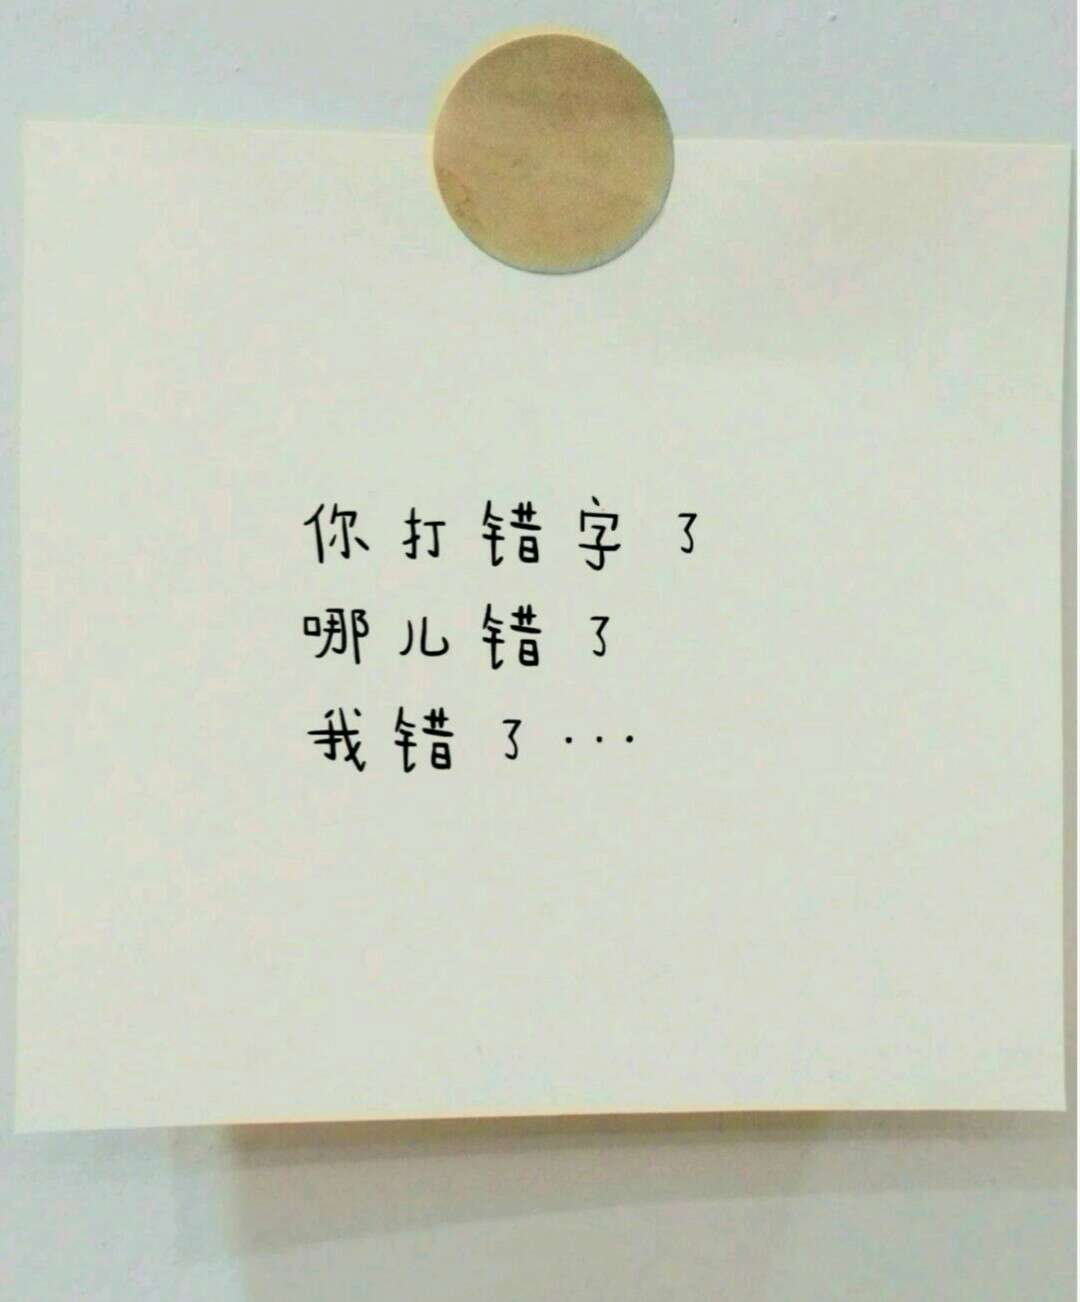 你打错字了
哪儿错了
我错了···